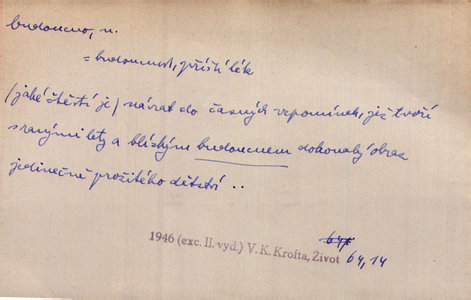 budoucno, n.
= budoucnost, příští věk
(jaké štěstí je) návrat do časných vzpomínek, jež tvoří
s ranými lety a blízkým budoucnem dokonalý obraz
jedinečně prožitého dětství ..
1946 (exc. II. vyd.) V. K. Krofta, Život 64, 14